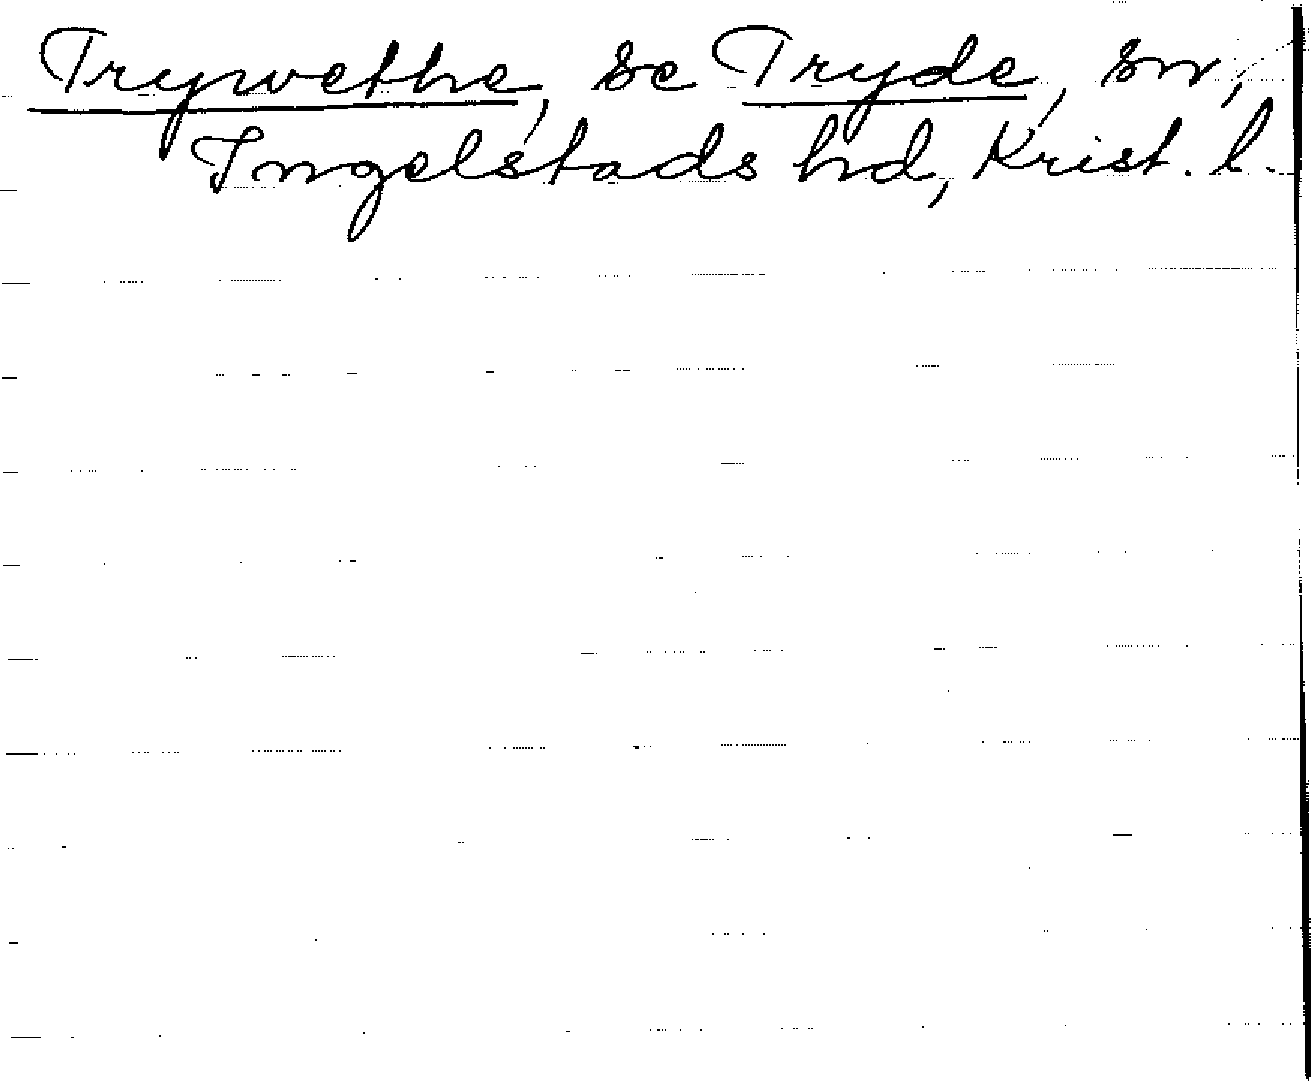 Trywethe, se Tryde, sn,
Ingelstads hd, Krist. l.